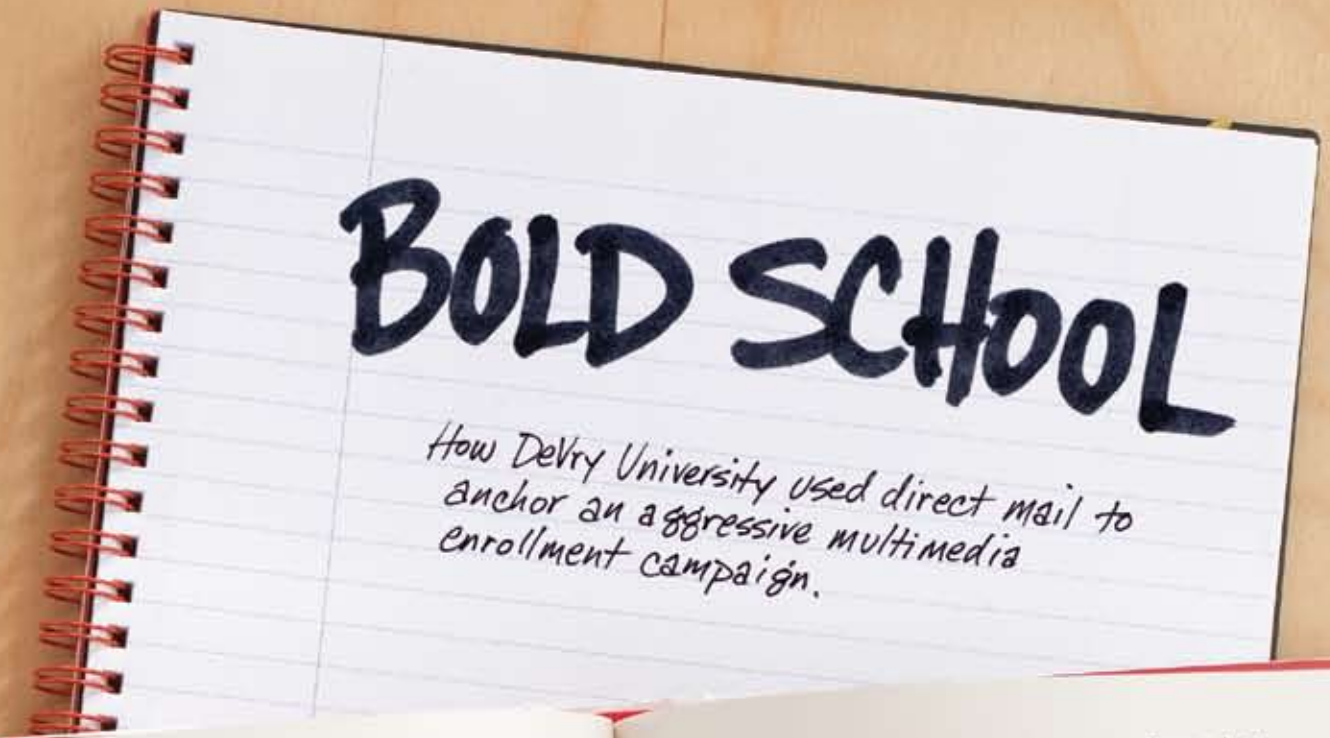 BOLD SCHOOL
How DeVry University used direct mail to
anchor an aggressive multimedia
enrollment campaign.